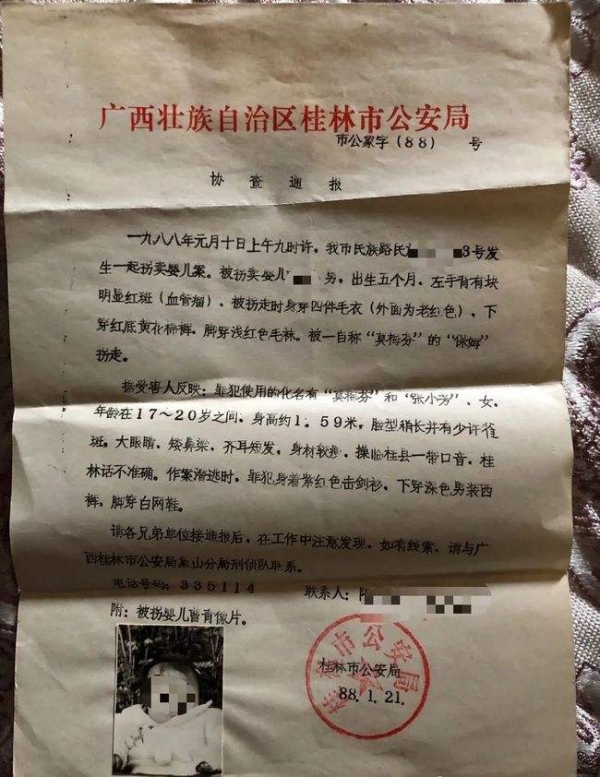 广西壮族自治区桂林市公安局
市公象字（88） 号
协查通报
一九八八年元月十日上午九时许，我市民族路民 3号发
生一起拐卖婴儿案。被拐卖婴儿 男，出生五个月，左手背有块
明显红斑（血管瘤），被拐走时身穿四件毛衣（外面为老红色），下
穿红底黄花棉裤，脚穿浅红色毛袜。被一自称“莫梅芬”的“保姆”
拐走。
据受害人反映：罪犯使用的化名有“莫梅芬”和“张小芳”，女，
年龄在17～20岁之间，身高约1.59米，脸型稍长并有少许雀
斑。大眼睛，矮鼻梁，齐耳短发，身材较瘦，操临桂县一带口音，桂
林话不准确。作案潜逃时，罪犯身着紫红色击剑衫，下穿深色男装西
裤，脚穿白网鞋。
请各兄弟单位接通报后，在工作中注意发现，如有线索，请与广
西桂林市公安局象山分局刑侦队联系。
电话号码：335114 联系人：
附：被拐婴儿曹肖像片。
桂林市公安局
桂林市公安局
88.1.21.